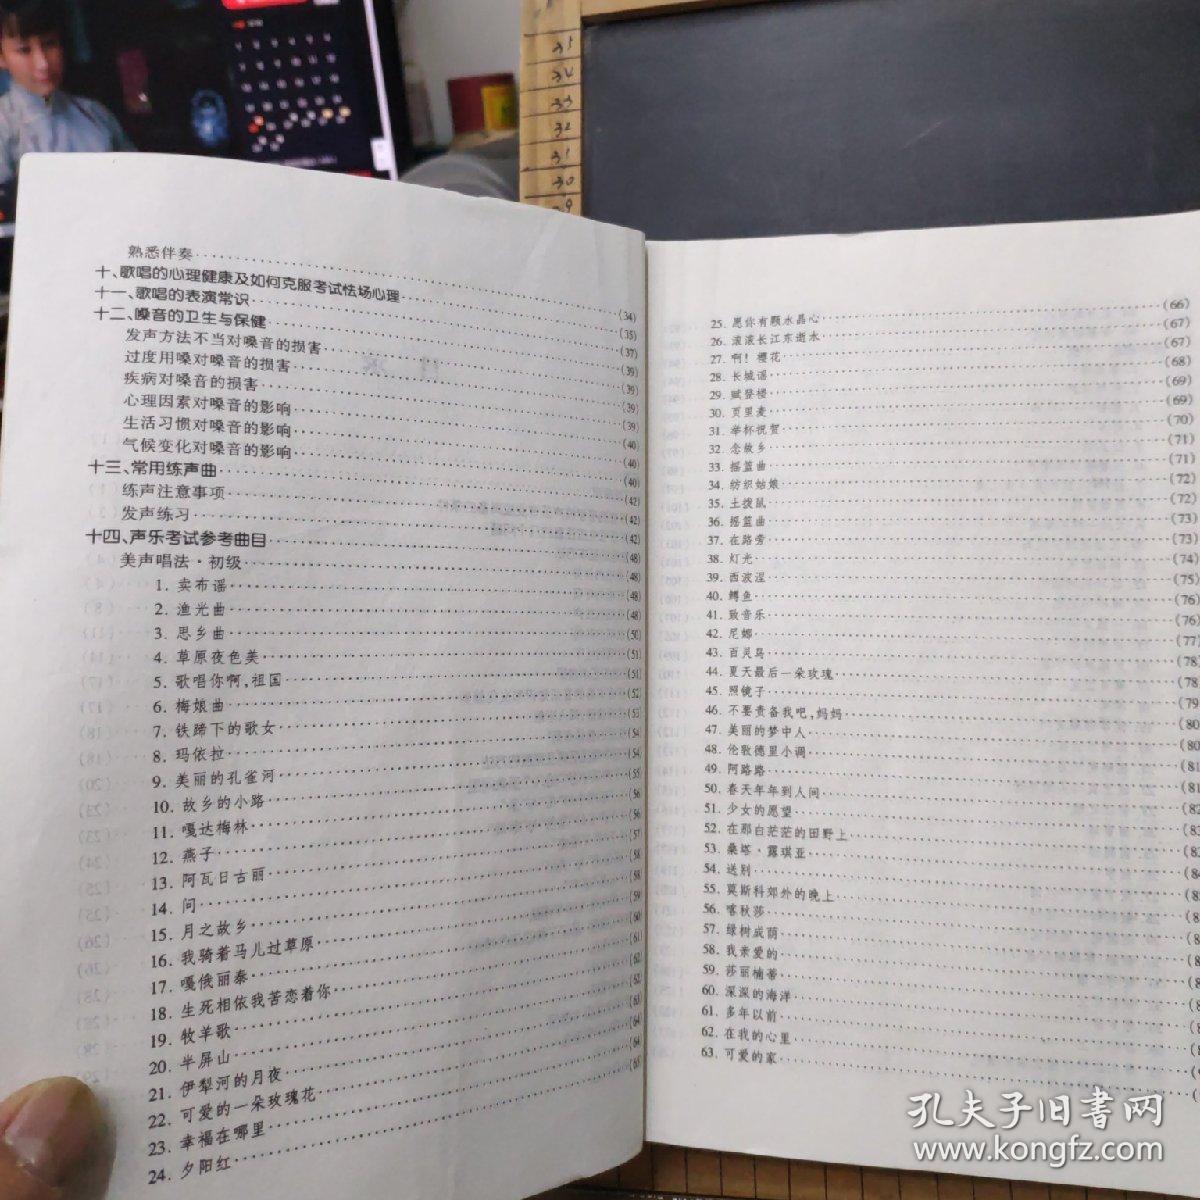 35
34
33
32
31
30
29
熟悉伴奏
十、歌唱的心理健康及如何克服考试怯场心理 (34)
十一、歌唱的表演常识 (35)
十二、嗓音的卫生与保健 (37)
发声方法不当对嗓音的损害 (39)
过度用嗓对嗓音的损害 (39)
疾病对嗓音的损害 (39)
心理因素对嗓音的影响 (39)
生活习惯对嗓音的影响 (40)
气候变化对嗓音的影响 (40)
十三、常用练声曲 (40)
练声注意事项 (42)
发声练习 (42)
十四、声乐考试参考曲目 (42)
美声唱法·初级 (48)
1. 卖布谣 (48)
2. 渔光曲 (48)
3. 思乡曲 (48)
4. 草原夜色美 (50)
5. 歌唱你啊,祖国 (51)
6. 梅娘曲 (51)
7. 铁蹄下的歌女 (52)
8. 玛依拉 (53)
9. 美丽的孔雀河 (54)
10. 故乡的小路 (54)
11. 嘎达梅林 (55)
12. 燕子 (56)
13. 阿瓦日古丽 (56)
14. 问 (57)
15. 月之故乡 (58)
16. 我骑着马儿过草原 (58)
17. 嘎俄丽泰 (60)
18. 生死相依我苦恋着你 (61)
19. 牧羊歌 (62)
20. 半屏山 (62)
21. 伊犁河的月夜 (63)
22. 可爱的一朵玫瑰花 (64)
23. 幸福在哪里 (64)
24. 夕阳红 (65)
25. 愿你有颗水晶心 (66)
26. 滚滚长江东逝水 (67)
27. 啊!樱花 (67)
28. 长城谣 (68)
29. 赋登楼 (69)
30. 页里麦 (69)
31. 举杯祝贺 (70)
32. 念故乡 (71)
33. 摇篮曲 (71)
34. 纺织姑娘 (72)
35. 土拨鼠 (72)
36. 摇篮曲 (73)
37. 在路旁 (73)
38. 灯光 (74)
39. 西波涅 (75)
40. 鳟鱼 (76)
41. 致音乐 (76)
42. 尼娜 (77)
43. 百灵鸟 (78)
44. 夏天最后一朵玫瑰 (78)
45. 照镜子 (79)
46. 不要责备我吧,妈妈 (80)
47. 美丽的梦中人 (80)
48. 伦敦德里小调 (81)
49. 阿路路 (81)
50. 春天年年到人间
51. 少女的愿望
52. 在那白茫茫的田野上
53. 桑塔·露琪亚
54. 送别
55. 莫斯科郊外的晚上
56. 喀秋莎
57. 绿树成荫
58. 我亲爱的
59. 莎丽楠蒂
60. 深深的海洋
61. 多年以前
62. 在我的心里
63. 可爱的家
孔夫子旧书网
www.kongfz.com